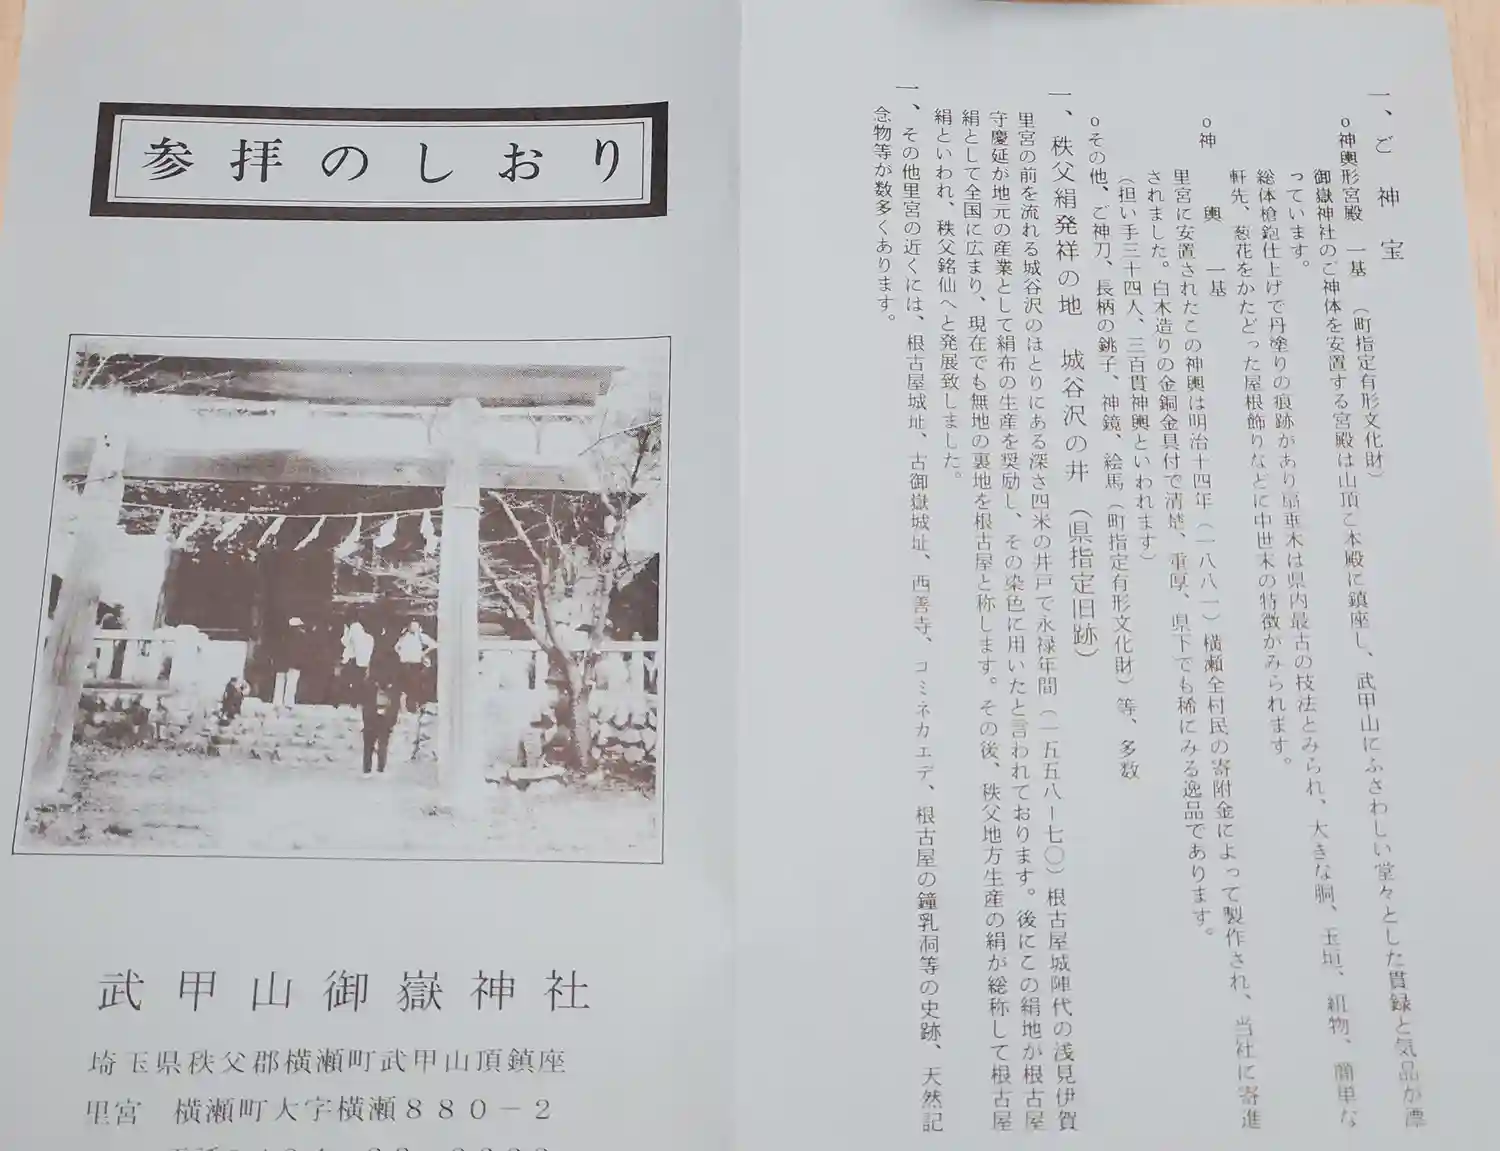 参拝のしおり
武甲山御嶽神社
埼玉県秩父郡横瀬町武甲山頂鎮座
里宮　横瀬町大字横瀬８８０－２
一、ご神宝
o神輿形宮殿　一基　（町指定有形文化財）
御嶽神社のご神体を安置する宮殿は山頂ご本殿に鎮座し、武甲山にふさわしい堂々とした貫録と気品が漂
っています。
総体槍鉋仕上げで丹塗りの痕跡があり扇垂木は県内最古の技法とみられ、大きな胴、玉垣、組物、簡単な
軒先、葱花をかたどった屋根飾りなどに中世末の特徴がみられます。
o神　輿　一基
里宮に安置されたこの神輿は明治十四年（一八八一）横瀬全村民の寄附金によって製作され、当社に寄進
されました。白木造りの金銅金具付で清楚、重厚、県下でも稀にみる逸品であります。
（担い手三十四人、三百貫神輿といわれます）
oその他、ご神刀、長柄の銚子、神鏡、絵馬（町指定有形文化財）等、多数
一、秩父絹発祥の地　城谷沢の井　（県指定旧跡）
里宮の前を流れる城谷沢のほとりにある深さ四米の井戸で永禄年間（一五五八ー七〇）根古屋城陣代の浅見伊賀
守慶延が地元の産業として絹布の生産を奨励し、その染色に用いたと言われております。後にこの絹地が根古屋
絹として全国に広まり、現在でも無地の裏地を根古屋と称します。その後、秩父地方生産の絹が総称して根古屋
絹といわれ、秩父銘仙へと発展致しました。
一、その他里宮の近くには、根古屋城址、古御嶽城址、西善寺、コミネカエデ、根古屋の鐘乳洞等の史跡、天然記
念物等が数多くあります。